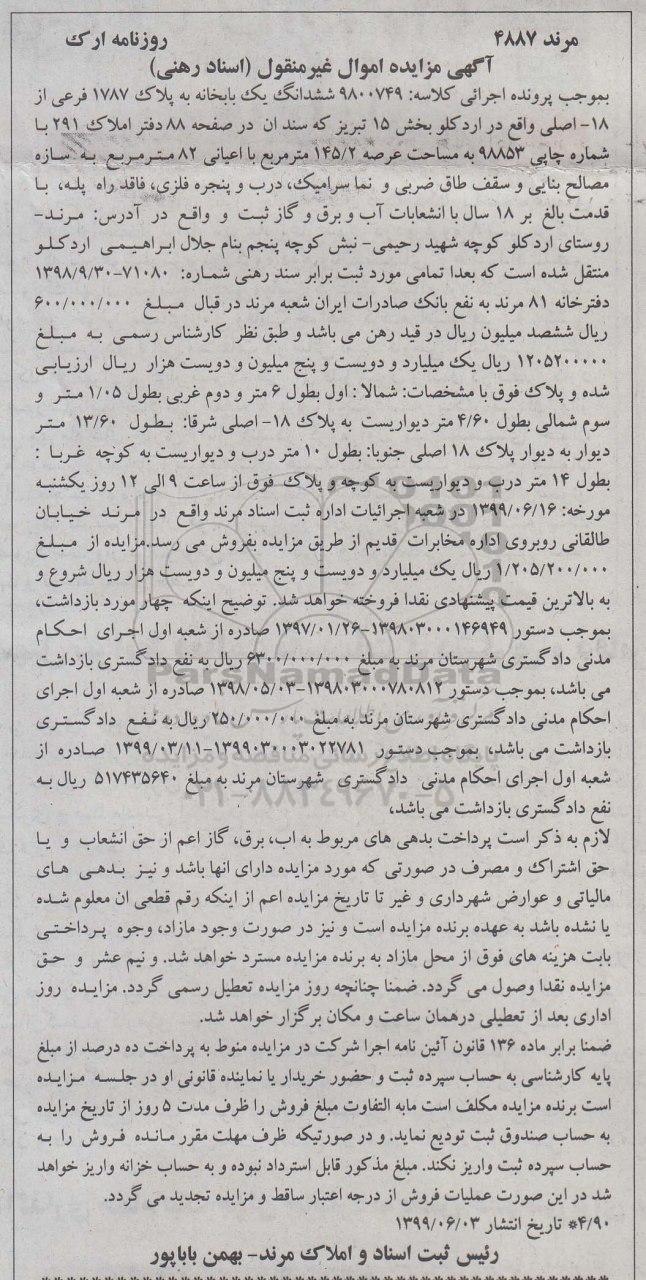 مرند ۴۸۸۷ روزنامه ارک
آگهی مزایده اموال غیرمنقول (اسناد رهنی)
بموجب پرونده اجرائی کلاسه: ۹۸۰۰۷۴۹ ششدانگ یک بابخانه به پلاک ۱۷۸۷ فرعی از
۱۸- اصلی واقع در اردکلو بخش ۱۵ تبریز که سند ان در صفحه ۸۸ دفتر املاک ۲۹۱ با
شماره چاپی ۹۸۸۵۳ به مساحت عرصه ۱۴۵/۲ مترمربع با اعیانی ۸۲ مترمربع به سازه
مصالح بنایی و سقف طاق ضربی و نما سرامیک، درب و پنجره فلزی، فاقد راه پله، با
قدمت بالغ بر ۱۸ سال با انشعابات آب و برق و گاز ثبت و واقع در آدرس: مرند-
روستای اردکلو کوچه شهید رحیمی- نبش کوچه پنجم بنام جلال ابراهیمی اردکلو
منتقل شده است که بعدا تمامی مورد ثبت برابر سند رهنی شماره: ۷۱۰۸۰-۱۳۹۸/۹/۳۰
دفترخانه ۸۱ مرند به نفع بانک صادرات ایران شعبه مرند در قبال مبلغ ۶۰۰/۰۰۰/۰۰۰
ریال ششصد میلیون ریال در قید رهن می باشد و طبق نظر کارشناس رسمی به مبلغ
۱۲۰۵۲۰۰۰۰۰ ریال یک میلیارد و دویست و پنج میلیون و دویست هزار ریال ارزیابی
شده و پلاک فوق با مشخصات: شمالا : اول بطول ۶ متر و دوم غربی بطول ۱/۰۵ متر و
سوم شمالی بطول ۴/۶۰ متر دیواریست به پلاک ۱۸- اصلی شرقا: بطول ۱۳/۶۰ متر
دیوار به دیوار پلاک ۱۸ اصلی جنوبا: بطول ۱۰ متر درب و دیواریست به کوچه غربا :
بطول ۱۴ متر درب و دیواریست به کوچه و پلاک فوق از ساعت ۹ الی ۱۲ روز یکشنبه
مورخه: ۱۳۹۹/۰۶/۱۶ در شعبه اجرائیات اداره ثبت اسناد مرند واقع در مرند خیابان
طالقانی روبروی اداره مخابرات قدیم از طریق مزایده بفروش می رسد.مزایده از مبلغ
۱/۲۰۵/۲۰۰/۰۰۰ ریال یک میلیارد و دویست و پنج میلیون و دویست هزار ریال شروع و
به بالاترین قیمت پیشنهادی نقدا فروخته خواهد شد. توضیح اینکه چهار مورد بازداشت،
بموجب دستور ۱۳۹۸۰۳۰۰۰۱۴۶۹۴۹-۱۳۹۷/۰۱/۲۶ صادره از شعبه اول اجرای احکام
مدنی دادگستری شهرستان مرند به مبلغ ۶۳۰۰/۰۰۰/۰۰۰ ریال به نفع دادگستری بازداشت
می باشد، بموجب دستور ۱۳۹۸۰۳۰۰۰۷۸۰۸۱۲-۱۳۹۸/۰۵/۰۳ صادره از شعبه اول اجرای
احکام مدنی دادگستری شهرستان مرند به مبلغ ۲۵۰/۰۰۰/۰۰۰ ریال به نفع دادگستری
بازداشت می باشد، بموجب دستور ۱۳۹۹۰۳۰۰۰۳۰۲۲۷۸۱-۱۳۹۹/۰۳/۱۱ صادره از
شعبه اول اجرای احکام مدنی دادگستری شهرستان مرند به مبلغ ۵۱۷۴۳۵۶۴۰ ریال به
نفع دادگستری بازداشت می باشد،
لازم به ذکر است پرداخت بدهی های مربوط به اب، برق، گاز اعم از حق انشعاب و یا
حق اشتراک و مصرف در صورتی که مورد مزایده دارای انها باشد و نیز بدهی های
مالیاتی و عوارض شهرداری و غیر تا تاریخ مزایده اعم از اینکه رقم قطعی ان معلوم شده
یا نشده باشد به عهده برنده مزایده است و نیز در صورت وجود مازاد، وجوه پرداختی
بابت هزینه های فوق از محل مازاد به برنده مزایده مسترد خواهد شد. و نیم عشر و حق
مزایده نقدا وصول می گردد. ضمنا چنانچه روز مزایده تعطیل رسمی گردد. مزایده روز
اداری بعد از تعطیلی درهمان ساعت و مکان برگزار خواهد شد.
ضمنا برابر ماده ۱۳۶ قانون آئین نامه اجرا شرکت در مزایده منوط به پرداخت ده درصد از مبلغ
پایه کارشناسی به حساب سپرده ثبت و حضور خریدار یا نماینده قانونی او در جلسه مزایده
است برنده مزایده مکلف است مابه التفاوت مبلغ فروش را ظرف مدت ۵ روز از تاریخ مزایده
به حساب صندوق ثبت تودیع نماید. و در صورتیکه ظرف مهلت مقرر مانده فروش را به
حساب سپرده ثبت واریز نکند. مبلغ مذکور قابل استرداد نبوده و به حساب خزانه واریز خواهد
شد در این صورت عملیات فروش از درجه اعتبار ساقط و مزایده تجدید می گردد.
۴/۹۰* تاریخ انتشار ۱۳۹۹/۰۶/۰۳
رئیس ثبت اسناد و املاک مرند- بهمن باباپور
ParsNamadData
۰۲۱-۸۸۳۴۹۶۷۰-۵